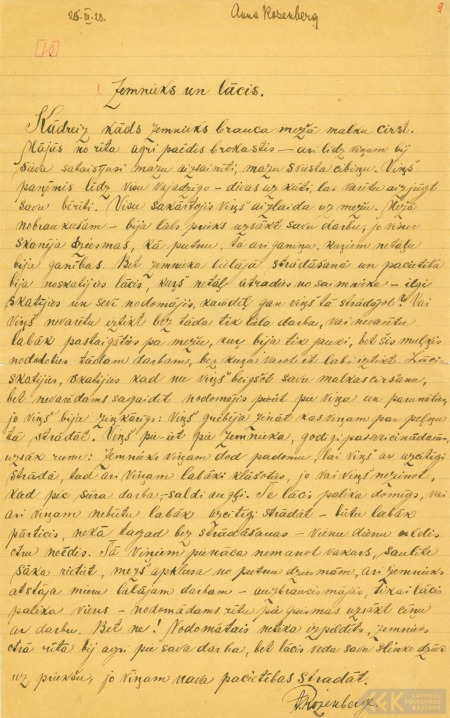 26.IV.28.
Anna Rozenberg
9
10
Zemnieks un lācis.
Kādreiz kāds zemnieks brauca mežā malku cirst.
Mājās no rīta agri paēdis brokastis – arī līdz viņam bij
sieva sataisījusi mazu aizsainīti, mazu sviesta cibiņu. Viņš
paņēmis līdz visu vajadzīgo – divas uz kūti, lai varētu aizjūgt
savu bērīti. Visu sakārtojis viņš aizlaida uz mežu. Mežā
nobraukušam – bija labs prieks uzsākt savu darbu, jo visur
skanēja dziesmas, kā putnu, tā arī ganiņu, kuriem netālu
bija ganības. Bet zemnieka lielajā strādāšanā un pacietībā
bija noskatījies lācis, kurš netāl atradās no saimnieka – ilgi
skatījās un sevī nodomājis, kamdēļ gan viņš tā strādājot? Vai
viņš nevarētu iztikt bez tāda tik liela darba, vai nevarētu
labāk pastaigāties pa mežu, kur bija tik jauki, bet šis muļķis
nododoties tādam darbam, bez kura varot it labi iztikt. Lācis
skatījās, skatījās kad nu viņš beigšot savu malkas ciršanu,
bet nevarēdams sagaidīt nodomājis pieiet pie viņa un parunāties,
jo viņš bija ziņkārīgs: Viņš gribēja zināt kas viņam par peļņu
tā strādāt. Viņš pie-iet pie zemnieka, godīgi pasveicinādams,
uzsāk runu: zemnieks viņam dod padomu, Vai viņš ar uzcītīgi
strādā, tad arī viņam labāki klāšoties, jo vai viņš nezinot,
kad pie sūra darba – saldi augļi. Te lācis palika domīgs, vai
arī viņam nebūtu labāk uzcītīgi strādāt – būtu labāk
pārticis, nekā tagad bez strādāšanas – vienu dienu ēdis
otru neēdis. Tā viņiem pienāca nemanot vakars, saulīte
sāka rietēt, mežs apklusa no putnu dziesmām, arī zemnieks
atstāja mieru tālājam darbam – aizbraucis mājās, tikai lācis
palika viens – nodomādams rītu pie gaismas uzsākt cīņu
ar darbu. Bet ne! Nodomātais netika izpildīts, zemnieks
otrā rītā bij agri pie sava darba, bet lācis veda savu slinko dzīvi
uz priekšu, jo viņam nava pacietības strādāt.
A. Rozenberg.
LFK LATVIEŠU FOLKLORAS KRĀTUVE